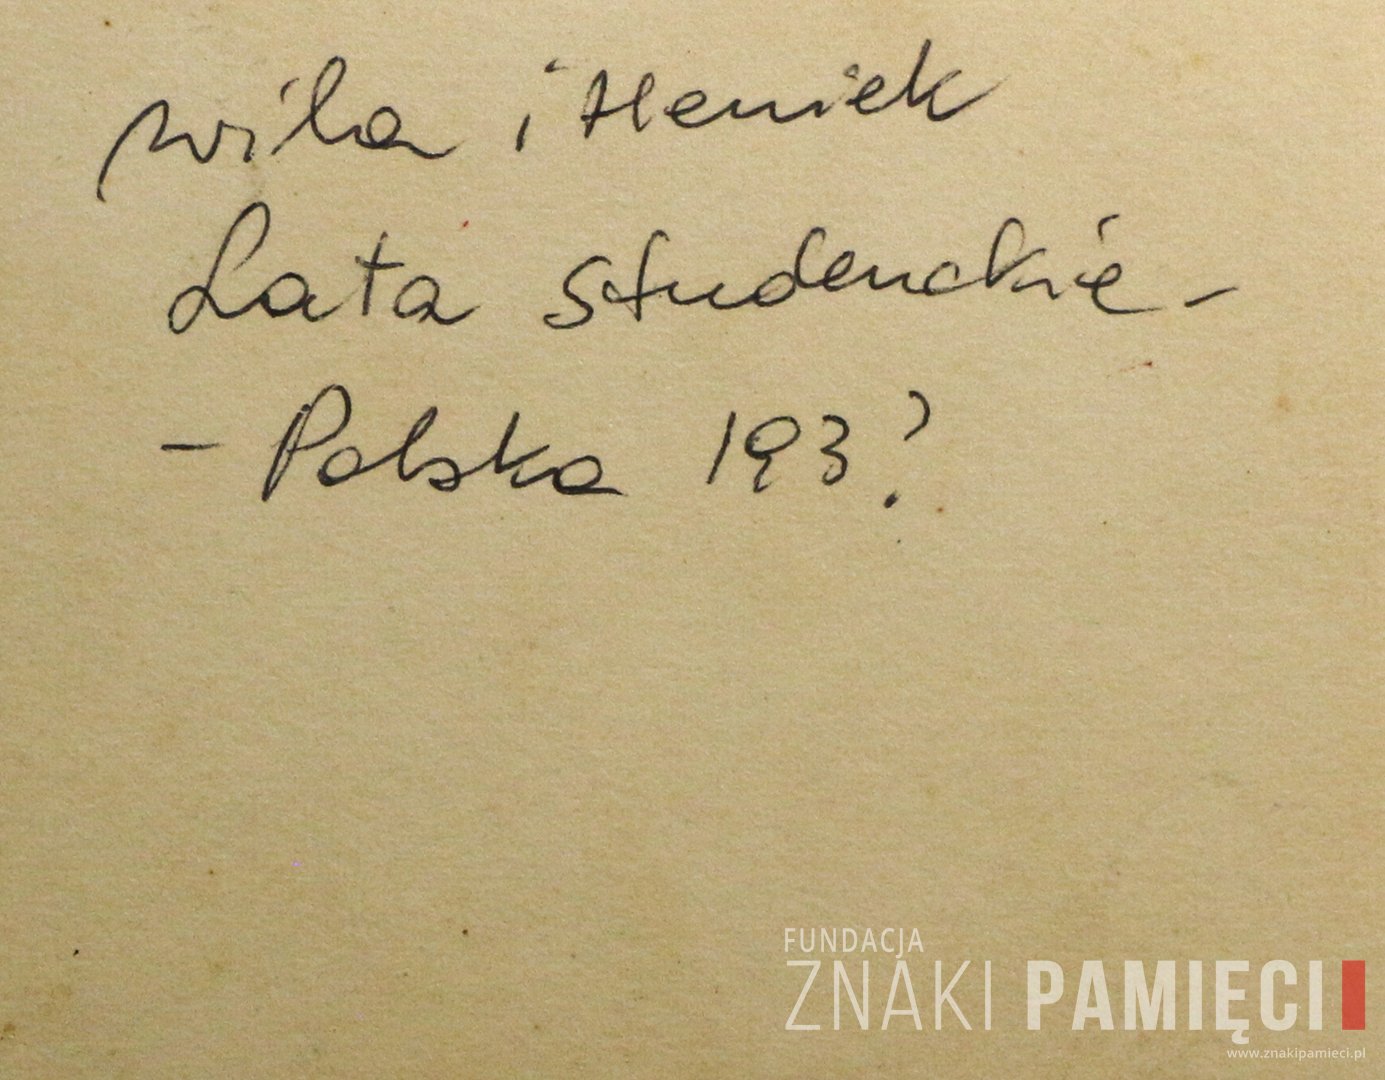 Wila i Heniek
Lata studenckie -
- Polska 193?
FUNDACJA
ZNAKI PAMIĘCI
www.znakipamieci.pl